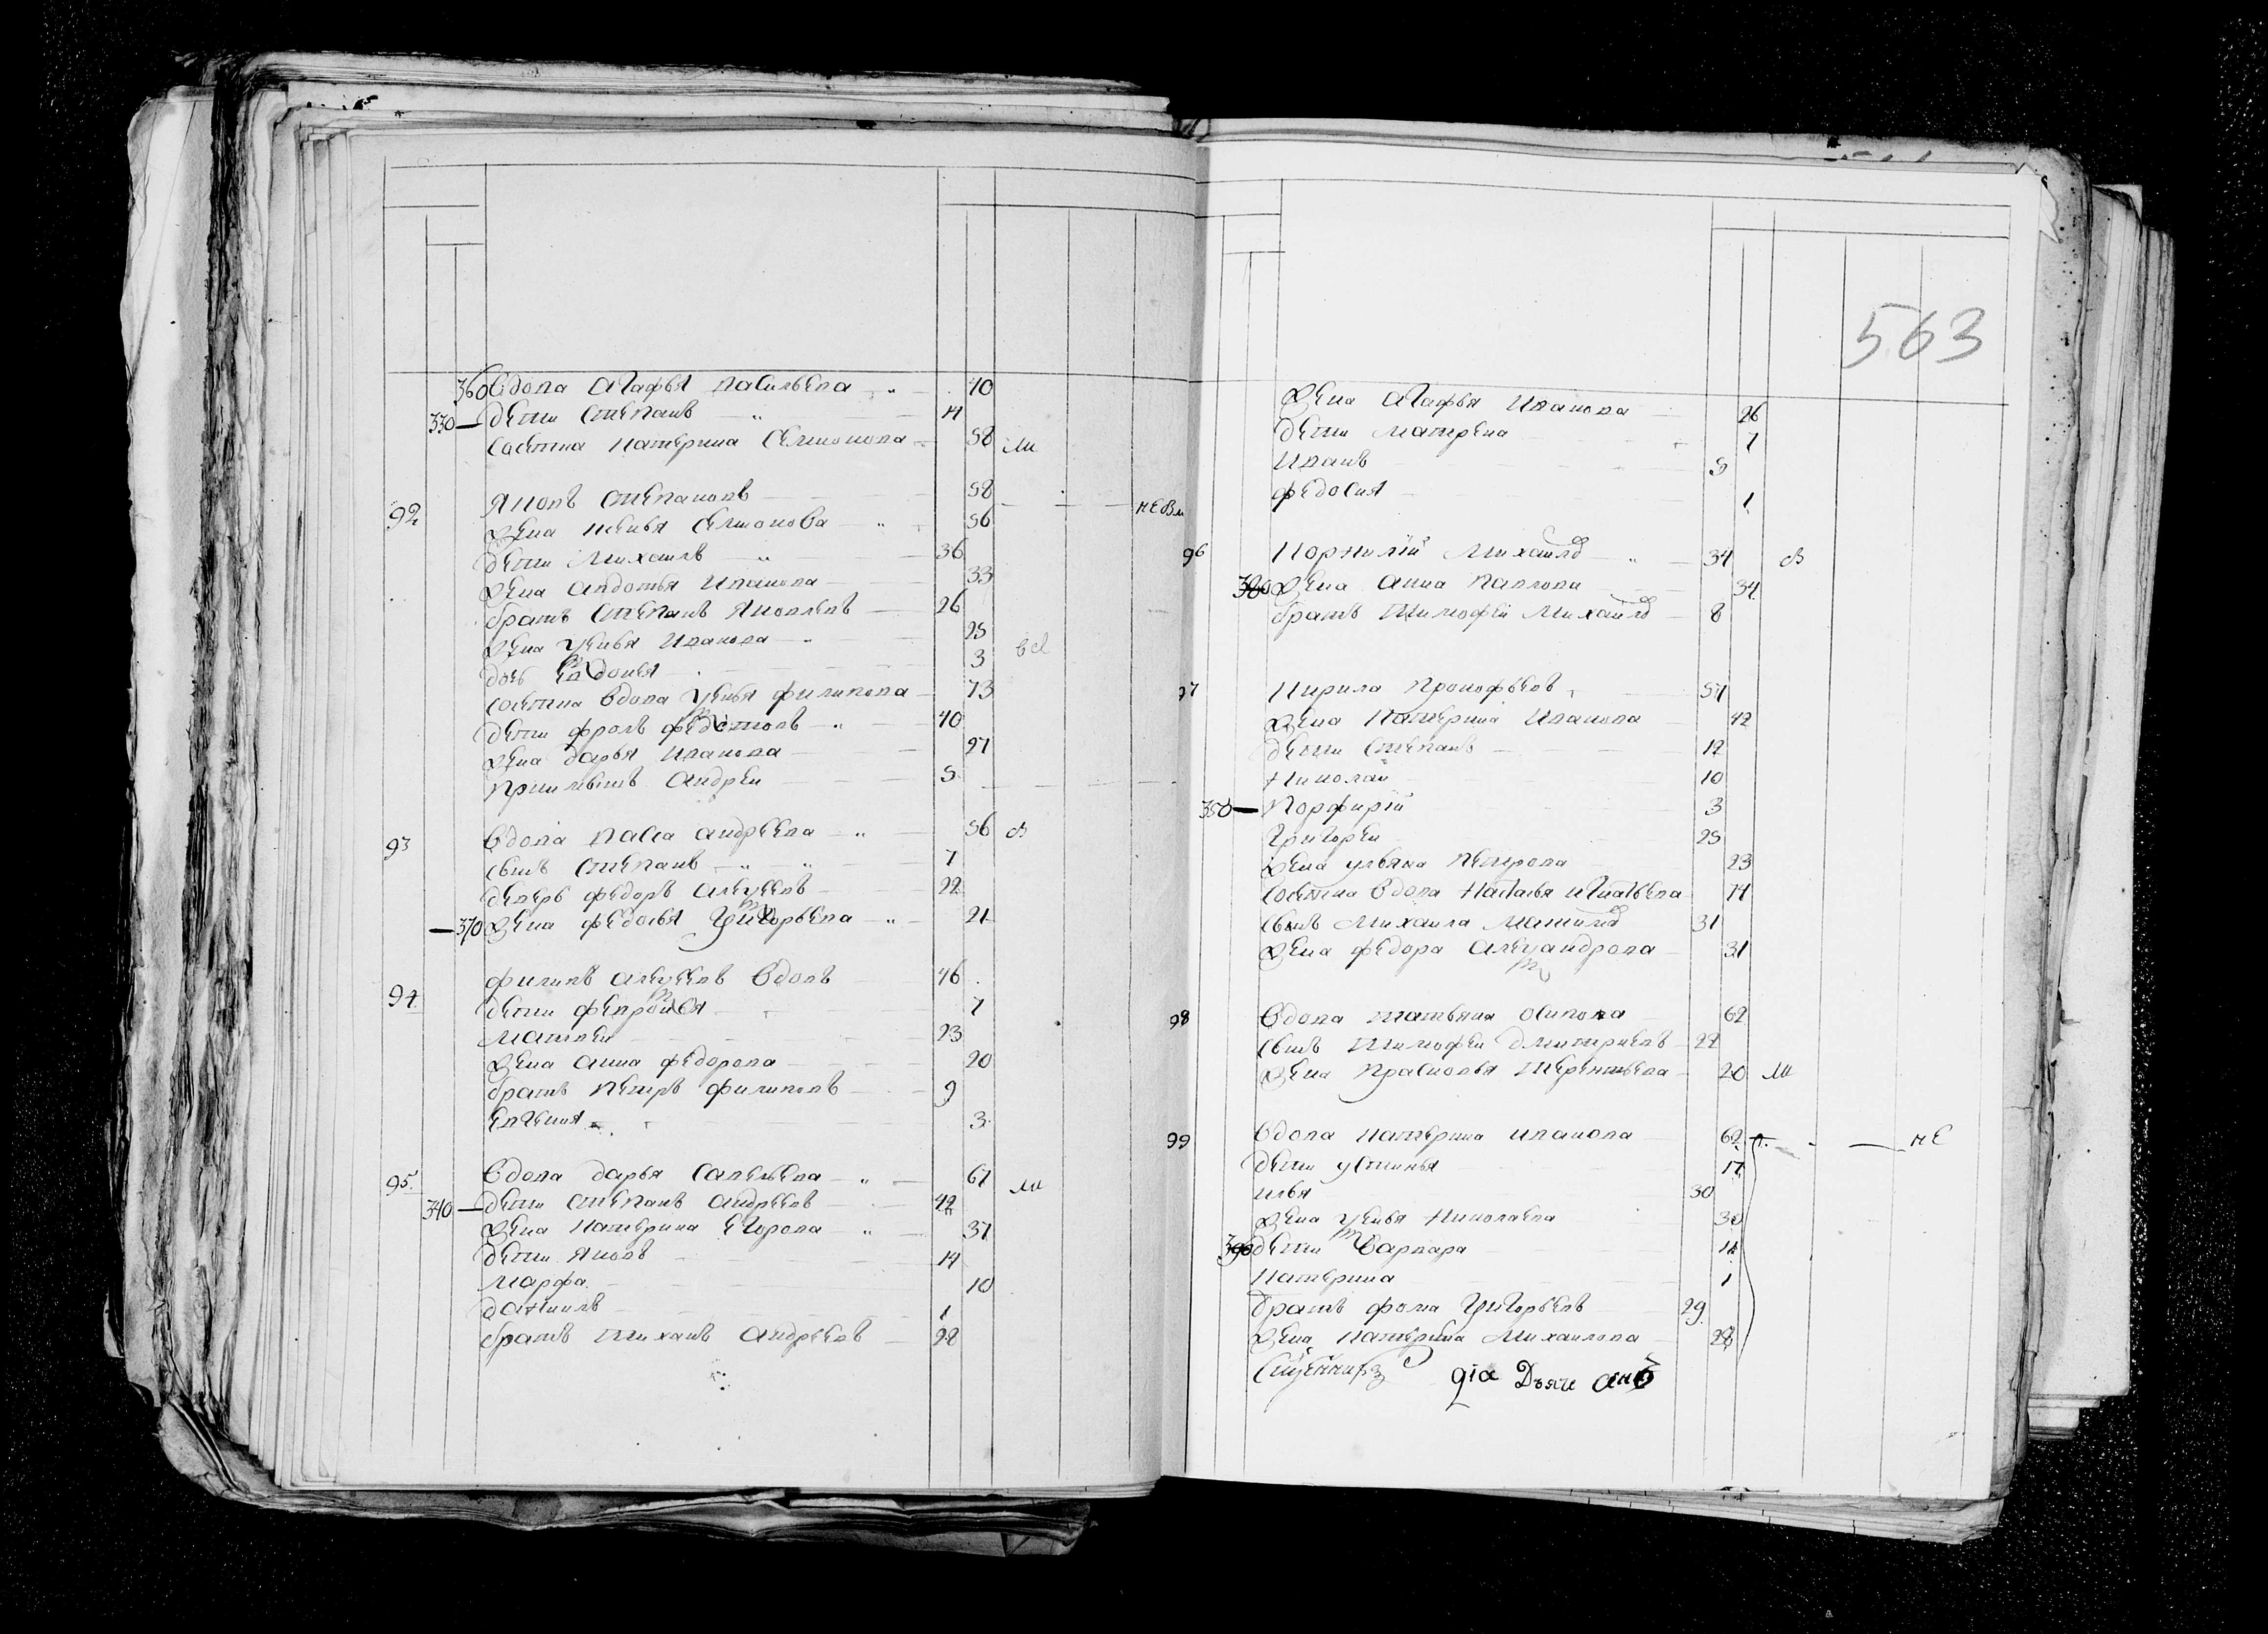 360 Вдова Агафья Васильева 40
330 дети Степанъ 14
Невѣстка Катерина Семионова 58 ли
92 Яковъ Степановъ 58 невм
жена Ксенья Семионова 56
дети Михаилъ 36
жена Авдотья Иванова 33
братъ Степанъ Яковлевъ 26
жена Ксенья Иванова 25
дочь Евдокея 3
Вдова Ксенья Филипова 73
дети Фролъ 40
жена Дарья Иванова 27
Андреи 5
93 Вдова Васса Андреева 56 В
сынъ Степанъ 7
деверь Федоръ Алексеевъ 22
370 жена Федосья Григорьева 21
94 Филипъ Алексеевъ Вдовъ 46
дети Феврониея 7
Матвеи 23
жена Анна Федорова 20
братъ Петръ Филиповъ 9
Евгения 3
95 Вдова Дарья Савельева 67 ли
340 дети Степанъ Андреевъ 42
жена Катерина Егорова 37
дети Яковъ 14
Марфа 10
Даниилъ 1
братъ Андреевъ 28
563
жена Агафья Иванова 26
дети Матрена 7
Иванъ 5
Федосия 1
96 Корнилiй Михайло 34 В
380 жена Анна Павлова 34
братъ Тимофеи Михайло 8
97 Кирила Прокофьевъ 57
жена Катерина Иванова 42
дети Степанъ 12
Николаи 10
350 Порфирiй 3
Григореи 25
жена Ульяна Петрова 23
Вдова Наталья Игнатьева
сынъ Михаила 31
жена Федора Александрова 31
98 Вдова Татьяна Осипова 62
сынъ Тимофеи Дмитриевъ 22
жена Прасковья Терентьева 20 ли
99 Вдова Катерина Иванова 62 не
дети Устинья 17
Илья 30
жена Ксенья Николаева 30
390 дети Варвара
Катерина 1
братъ Фома Григорьевъ 29
жена Катерина Михаилова 28